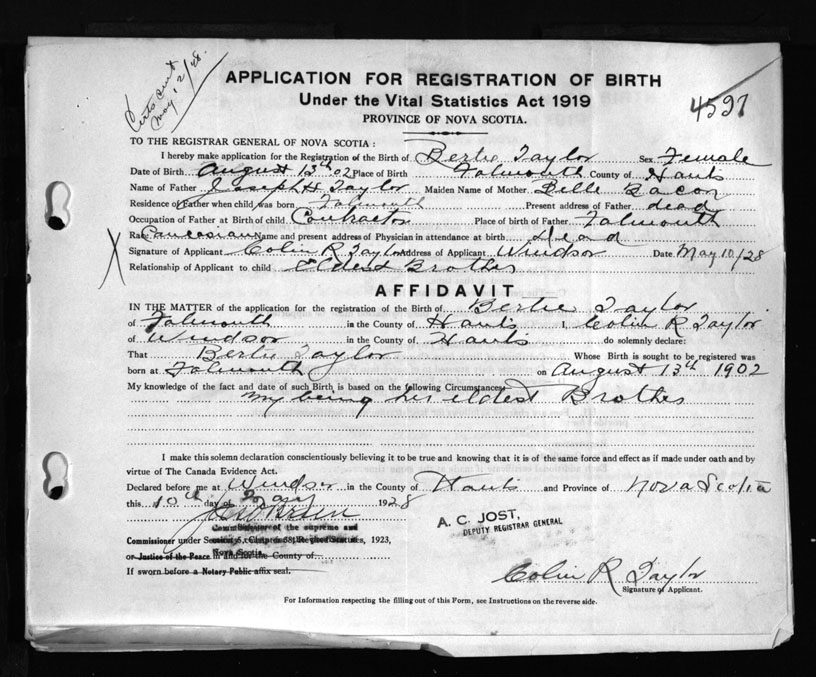 Certs sent
May 12/48.
APPLICATION FOR REGISTRATION OF BIRTH
4597
Under the Vital Statistics Act 1919
PROVINCE OF NOVA SCOTIA.
TO THE REGISTRAR GENERAL OF NOVA SCOTIA :
I hereby make application for the Registration of the Birth of Bertie Taylor Sex Female
Date of Birth August 13th 02 Place of Birth Falmouth County of Hants
Name of Father Joseph H Taylor Maiden Name of Mother Belle Bacon
Residence of Father when child was born Falmouth Present address of Father dead
Occupation of Father at Birth of child Contractor Place of birth of Father Falmouth
X Race Caucasian Name and present address of Physician in attendance at birth dead
Signature of Applicant Colin R Taylor Address of Applicant Windsor Date May 10/28
Relationship of Applicant to child Eldest Brother
AFFIDAVIT
IN THE MATTER of the application for the registration of the Birth of Bertie Taylor
of Falmouth in the County of Hants I, Colin R Taylor
of Windsor in the County of Hants do solemnly declare:
That Bertie Taylor Whose Birth is sought to be registered was
born at Falmouth on August 13th 1902
My knowledge of the fact and date of such Birth is based on the following Circumstances
My being her eldest Brother
I make this solemn declaration conscientiously believing it to be true and knowing that it is of the same force and effect as if made under oath and by
virtue of The Canada Evidence Act.
Declared before me at Windsor in the County of Hants and Province of Nova Scotia
this 10th day of May 1928
A. C. JOST,
DEPUTY REGISTRAR GENERAL
of the supreme and
Commissioner under 1923,
Nova Scotia.
or Justice of the Peace in and for the County of
If sworn before a Notary Public affix seal.
Colin R Taylor
Signature of Applicant.
For Information respecting the filling out of this Form, see Instructions on the reverse side.